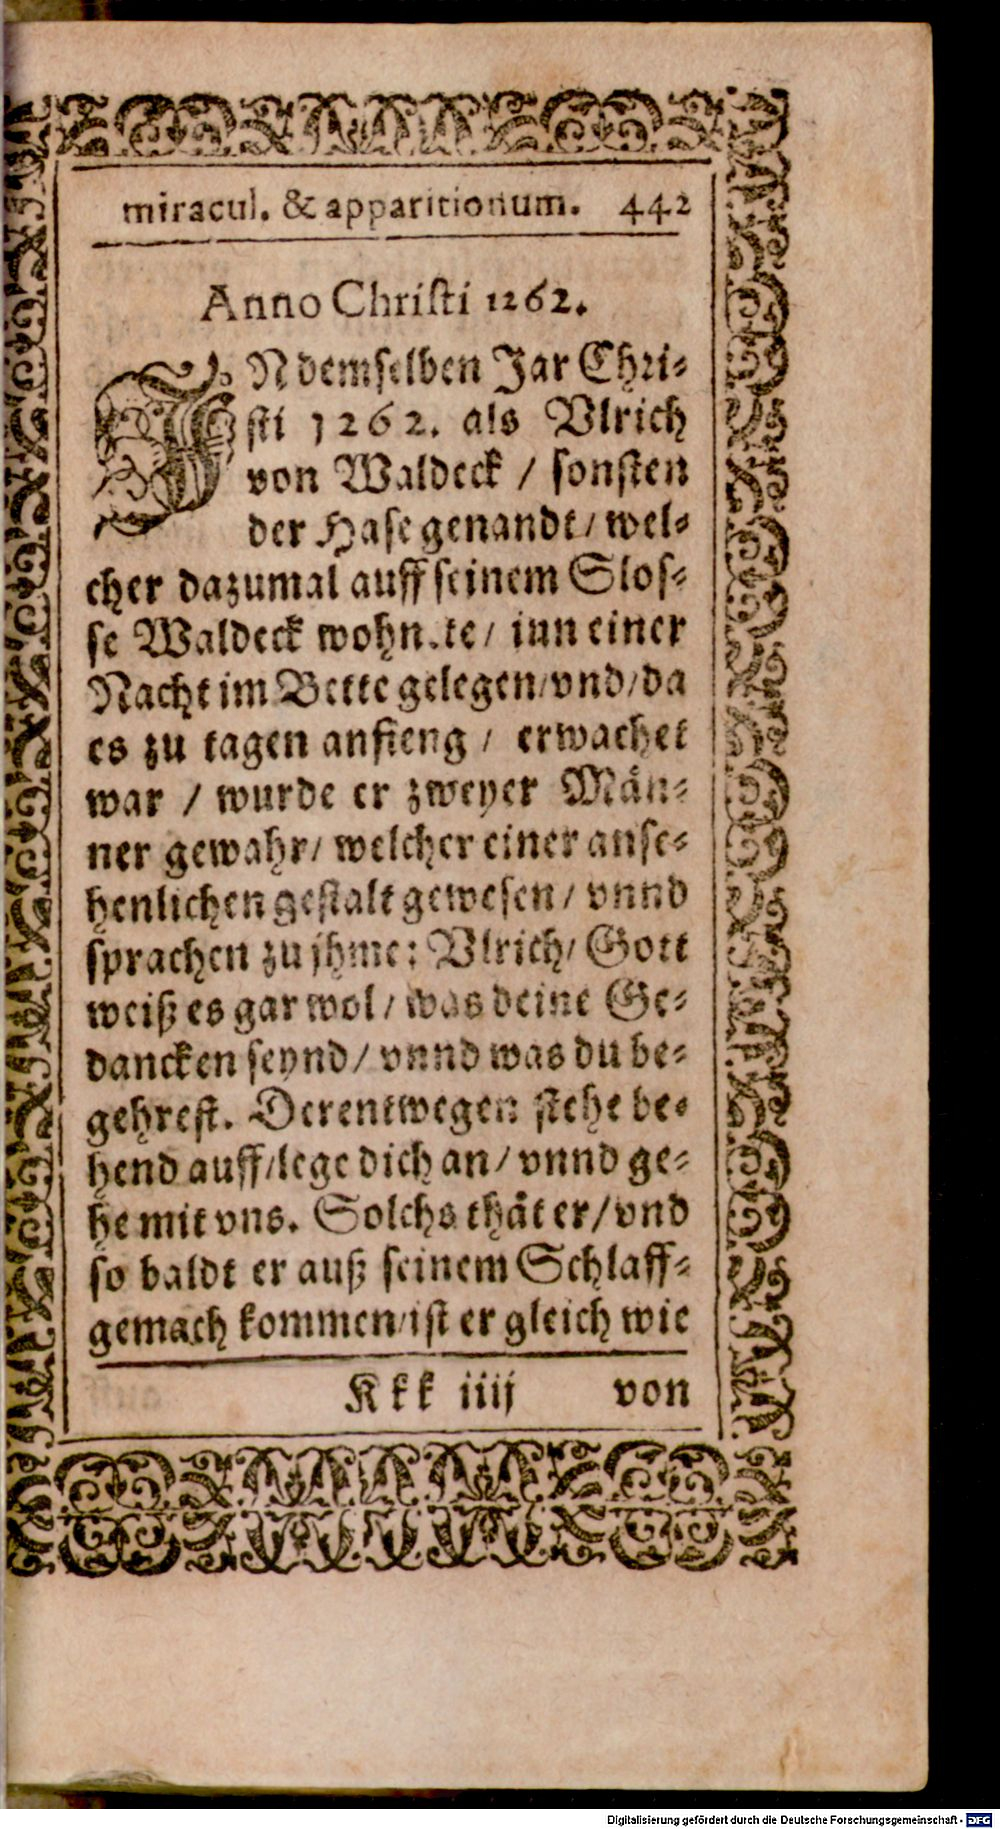 miracul. & apparitionum. 442
Anno Chriſti 1262.
IN demſelben Jar Chri-
ſti 1262. als Vlrich
von Waldeck / ſonſten
der Haſe genandt / wel-
cher dazumal auff ſeinem Sloſ-
ſe Waldeck wohnete / inn einer
Nacht im Bette gelegen / vnd / da
es zu tagen anfieng / erwachet
war / wurde er zweyer Män-
ner gewahr / welcher einer anſe-
henlichen geſtalt geweſen / vnnd
ſprachen zu jhme: Vlrich / Gott
weiß es gar wol / was deine Ge-
dancken ſeynd / vnnd was du be-
gehreſt. Derentwegen ſtehe be-
hend auff / lege dich an / vnnd ge-
he mit vns. Solchs thät er / vnd
ſo baldt er auß ſeinem Schlaff-
gemach kommen / iſt er gleich wie
Kkk iiij von
Digitalisierung gefördert durch die Deutsche Forschungsgemeinschaft - DFG